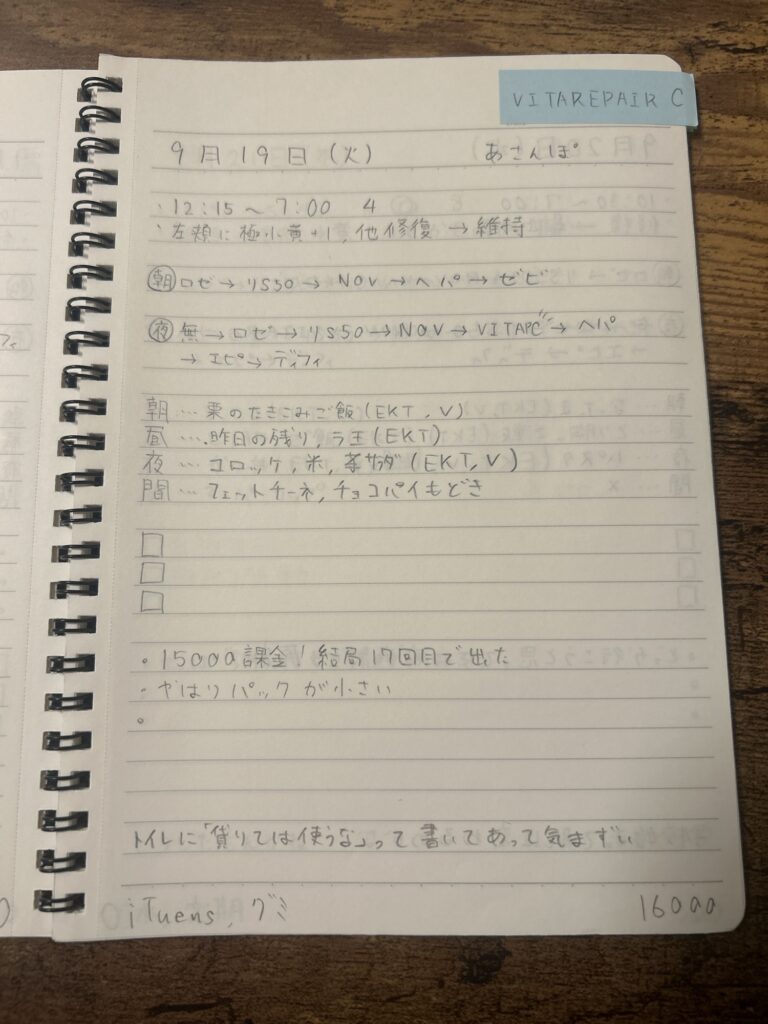 VITAREPAIR C
9月19日(火) あさんぽ
・12:15～7:00 4
・左頬に極小黄+1, 他修復 → 維持
㊗朝 ロゼ→リS50→NOV→ヘパ→ゼビ
夜 無→ロゼ→リS50→NOV→VITAPC→ヘパ
→エピ→ディフィ
朝…栗のたきこみご飯(EKT, V)
昼…昨日の残り, ラ王(EKT)
夜…コロッケ, 米, サラダ(EKT, V)
間…フェットチーネ, チョコパイもどき
□
□
□
。15000課金！結局17回目で出た
。やはりパックが小さい
。
トイレに「貸りては使うな」って書いてあって気まずい
iTuens, グミ 16000